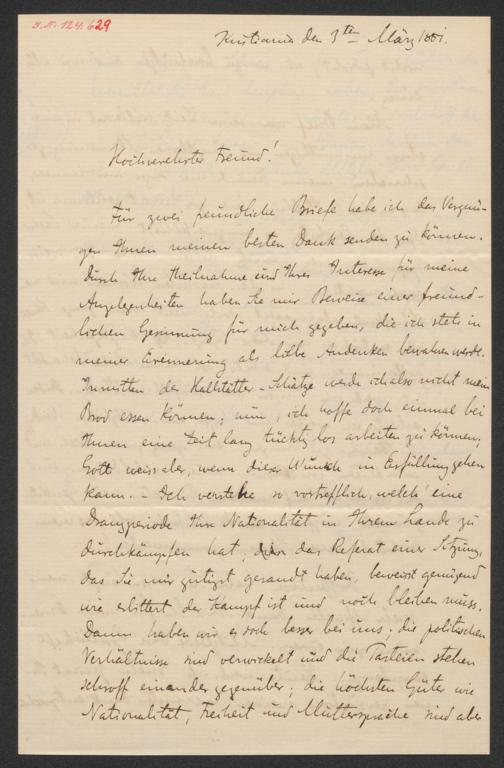 J.N. 124.629
Kristiania den 3te März 1881.
Hochverehrter Freund!
Für zwei freundliche Briefe habe ich das Vergnü-
gen Ihnen meinen besten Dank senden zu können.
Durch Ihre Theilnahme und Ihres Interesse für meine
Angelegenheiten haben Sie mir Beweise einer freund-
lichen Gesinnung für mich gegeben, die ich stets in
meiner Erinnerung als liebe Andenken bewahren werde.
Inmitten der Hallstätter-Schätze werde ich also nicht mein
Brod essen können; nun, ich hoffe doch einmal bei
Ihnen eine Zeit lang tüchtig los arbeiten zu können;
Gott weiss aber, wenn dieser Wunsch in Erfüllung gehen
kann. - Ich verstehe so vortrefflich, welch' eine
Drangperiode Ihre Nationalität in Ihrem Lande zu
durchkämpfen hat; das Referat einer Sitzung,
das Sie mir gütigst gesandt haben, beweist genügend
wie erbittert der Kampf ist und noch bleiben muss.
Dann haben wir es doch besser bei uns; die politischen
Verhältnisse sind verwickelt und die Parteien stehen
schroff einander gegenüber; die höchsten Güter wie
Nationalität, Freiheit und Muttersprache sind aber